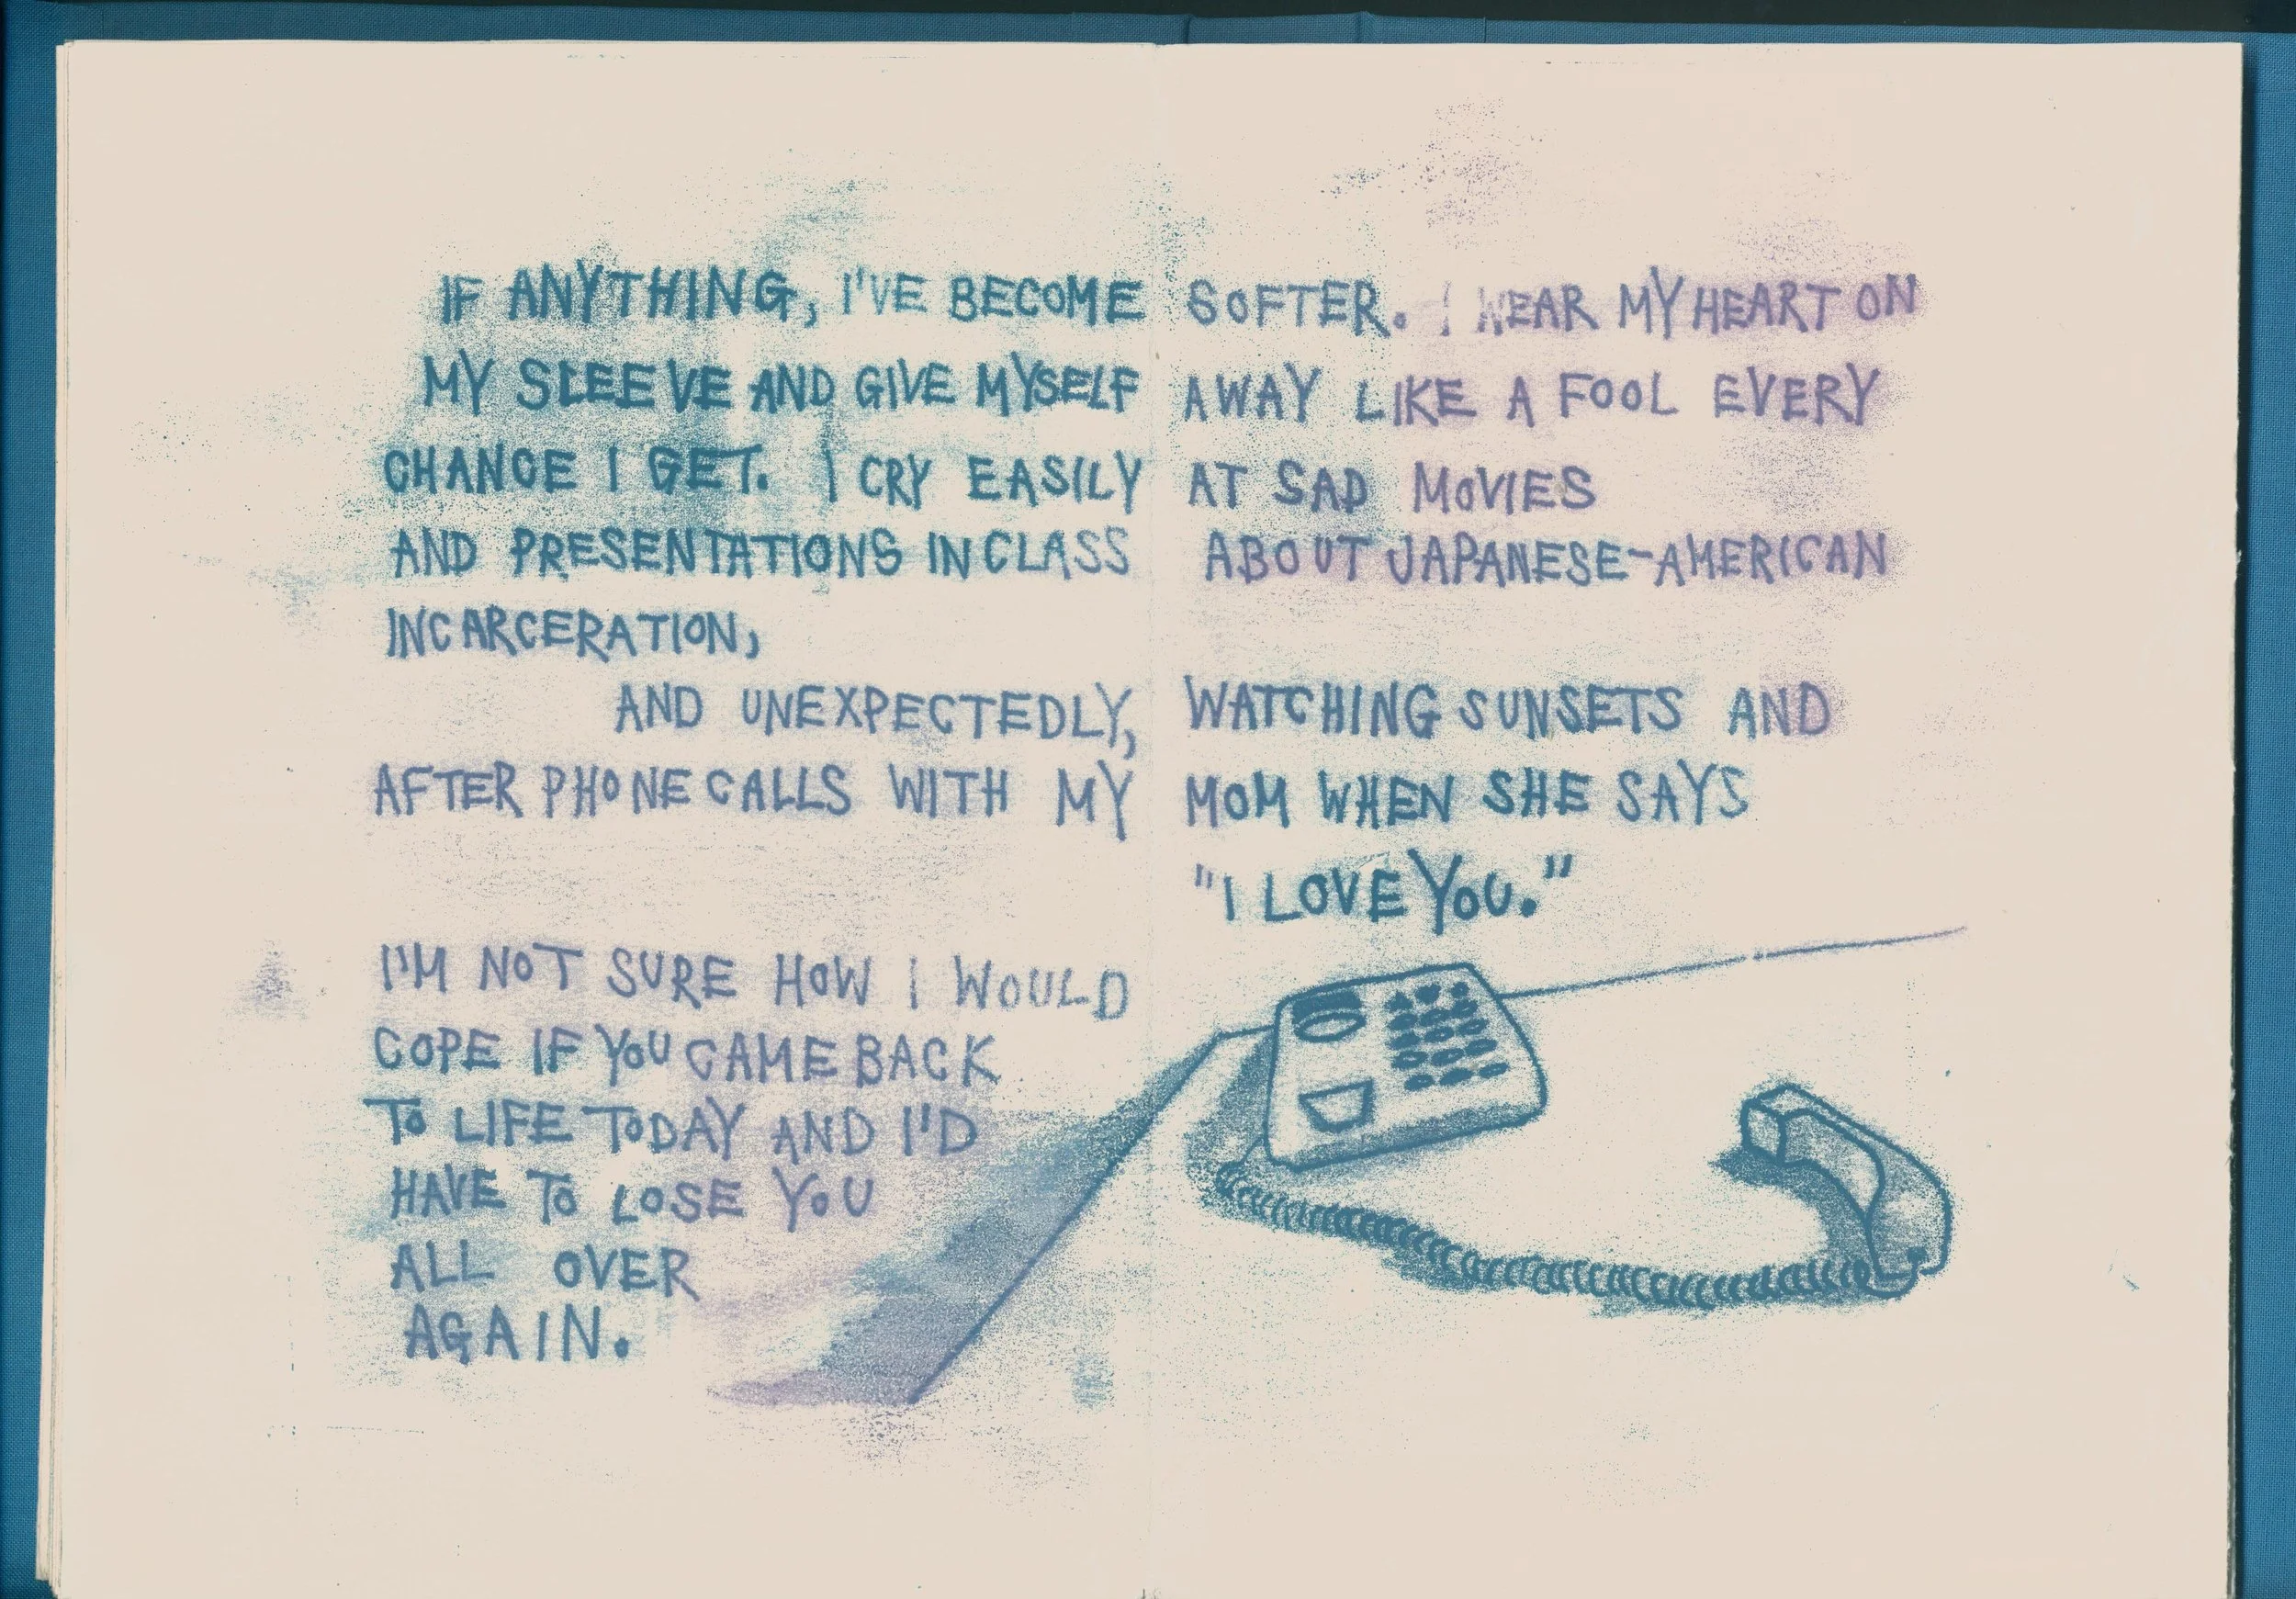 IF ANYTHING, I'VE BECOME SOFTER. I WEAR MY HEART ON
MY SLEEVE AND GIVE MYSELF AWAY LIKE A FOOL EVERY
CHANCE I GET. I CRY EASILY AT SAD MOVIES
AND PRESENTATIONS IN CLASS ABOUT JAPANESE-AMERICAN
INCARCERATION,
AND UNEXPECTEDLY, WATCHING SUNSETS AND
AFTER PHONE CALLS WITH MY MOM WHEN SHE SAYS
"I LOVE YOU."
I'M NOT SURE HOW I WOULD
COPE IF YOU CAME BACK
TO LIFE TODAY AND I'D
HAVE TO LOSE YOU
ALL OVER
AGAIN.